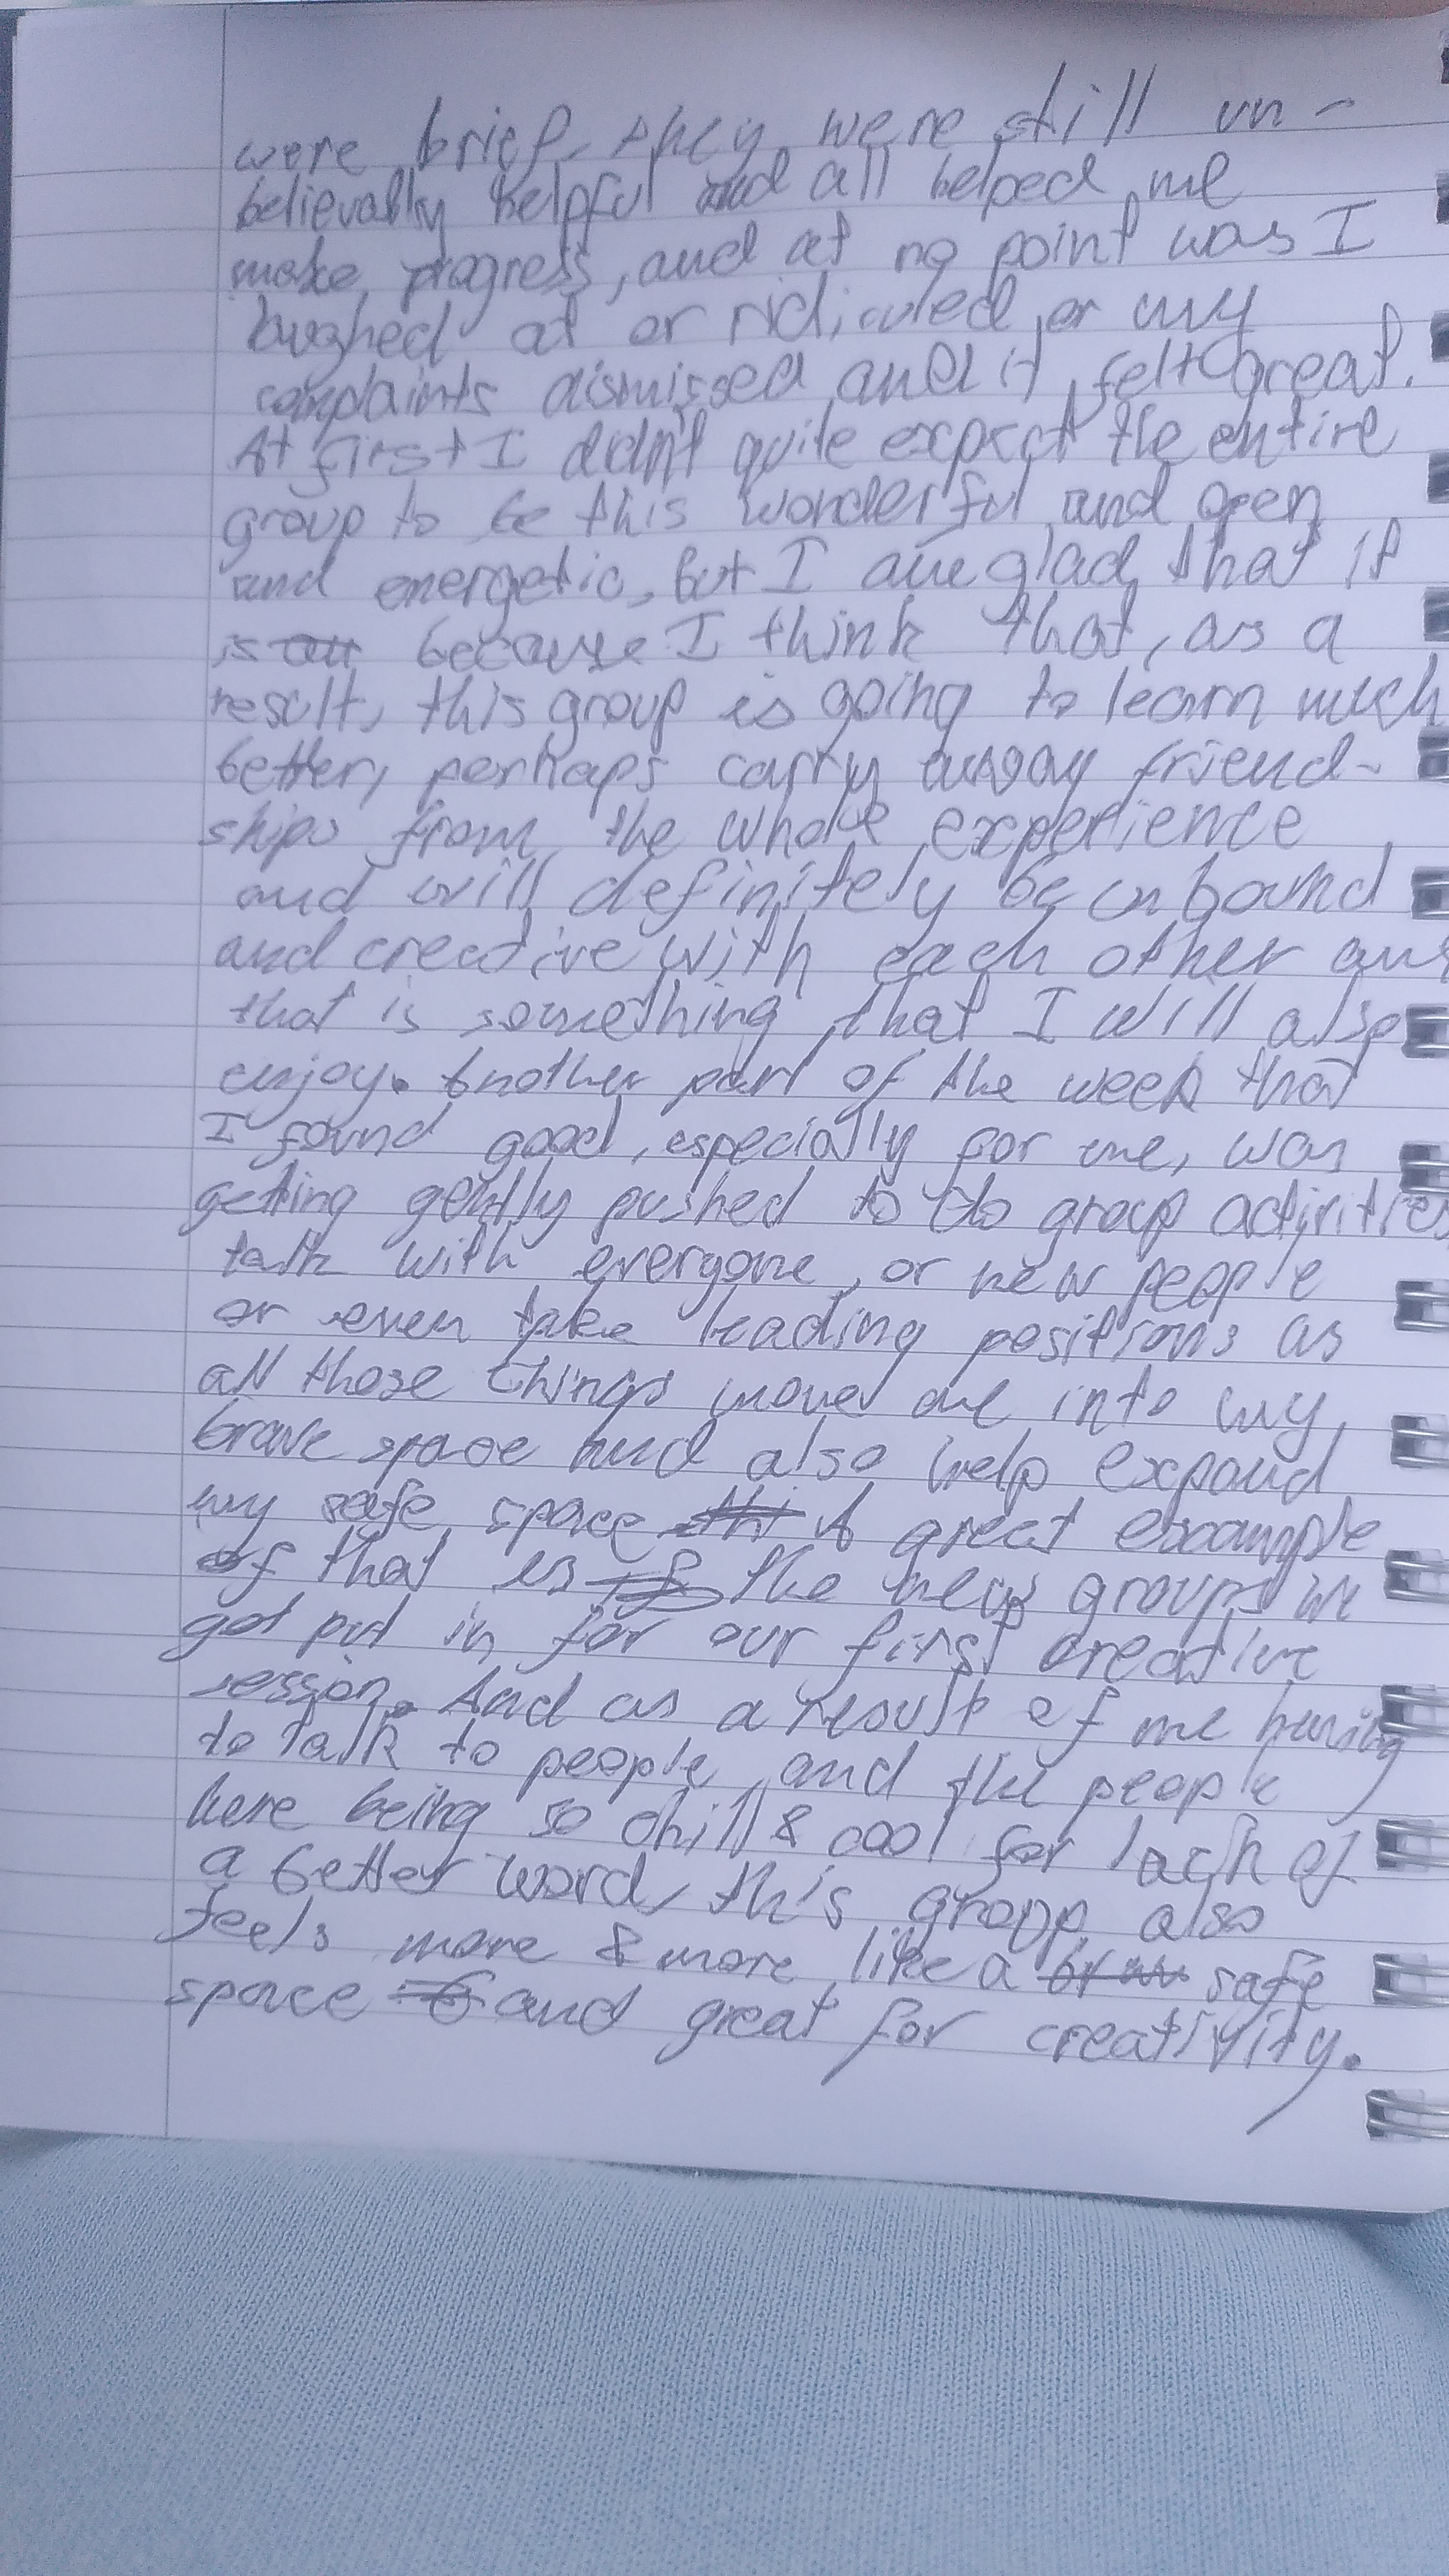 were brief, they were still un-
believably helpful and all helped me
make progress, and at no point was I
laughed at or ridiculed or my
complaints dismissed and it felt great.
At first I didn't quite expect the entire
group to be this wonderful and open
and energetic, but I am glad that it
is because I think that, as a
result, this group is going to learn much
better, perhaps carry away friend-
ships from the whole experience
and will definitely be unbound
and creative with each other and
that is something that I will also
enjoy. Another part of the week that
I found good, especially for me, was
getting gently pushed to do group activities
talk with everyone, or new people
or even take leading positions as
all those things move me into my
brave space and also help expand
my safe space A great example
of that is the new groups we
got put in for our first creative
session. And as a result of me having
to talk to people, and the people
here being so chill & cool for lack of
a better word, this group also
feels more & more like a safe
space and great for creativity.